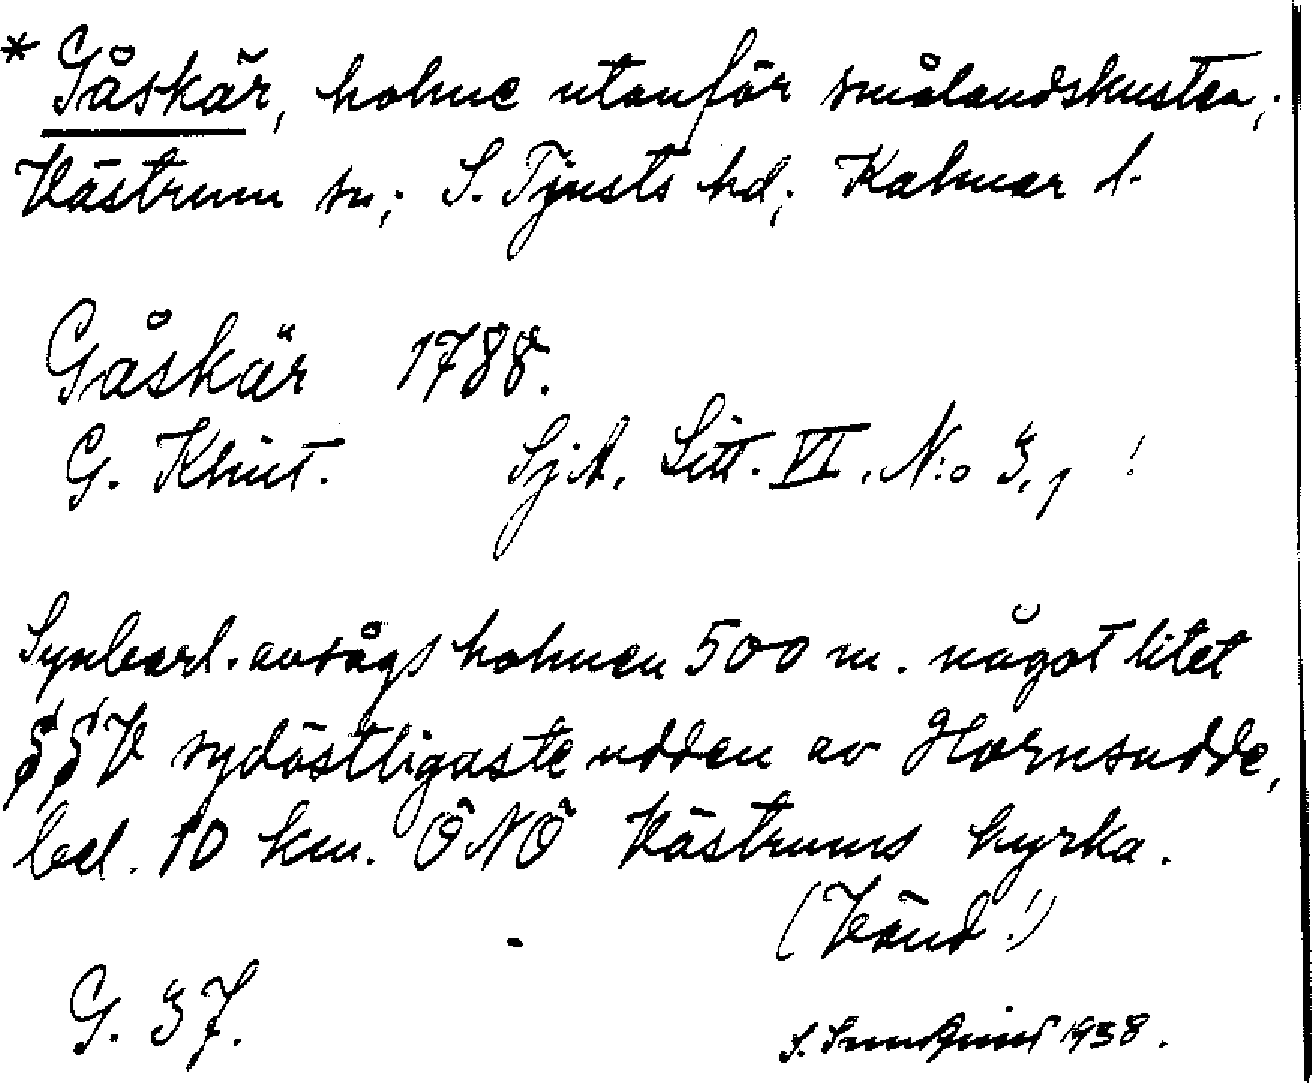 * Gåskär, holme utanför smålandskusten;
Västrum sn; S. Tjusts hd; Kalmar l.
Gåskär 1788.
G. Klint. SjA, Litt. VI. N:o 3, 1 !
Synbarl. avsågs holmen 500 m. något litet
SSV sydöstligaste udden av Hornsudde,
bel. 10 km. ÖNÖ Västrums kyrka.
(Vänd!)
G. 37.
S. 1938.